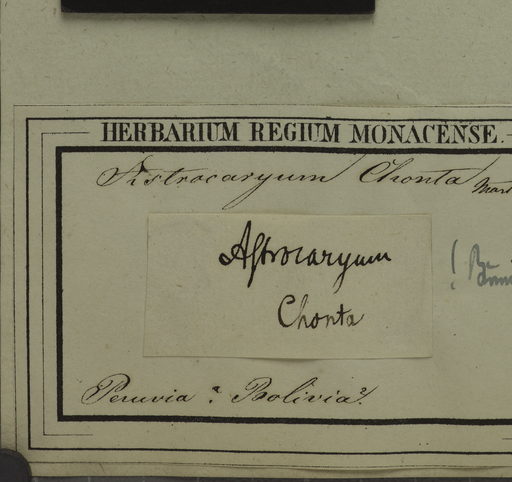 HERBARIUM REGIUM MONACENSE.
Astrocaryum Chonta Mart
Astrocaryum
Chonta
Peruvia? Bolivia?